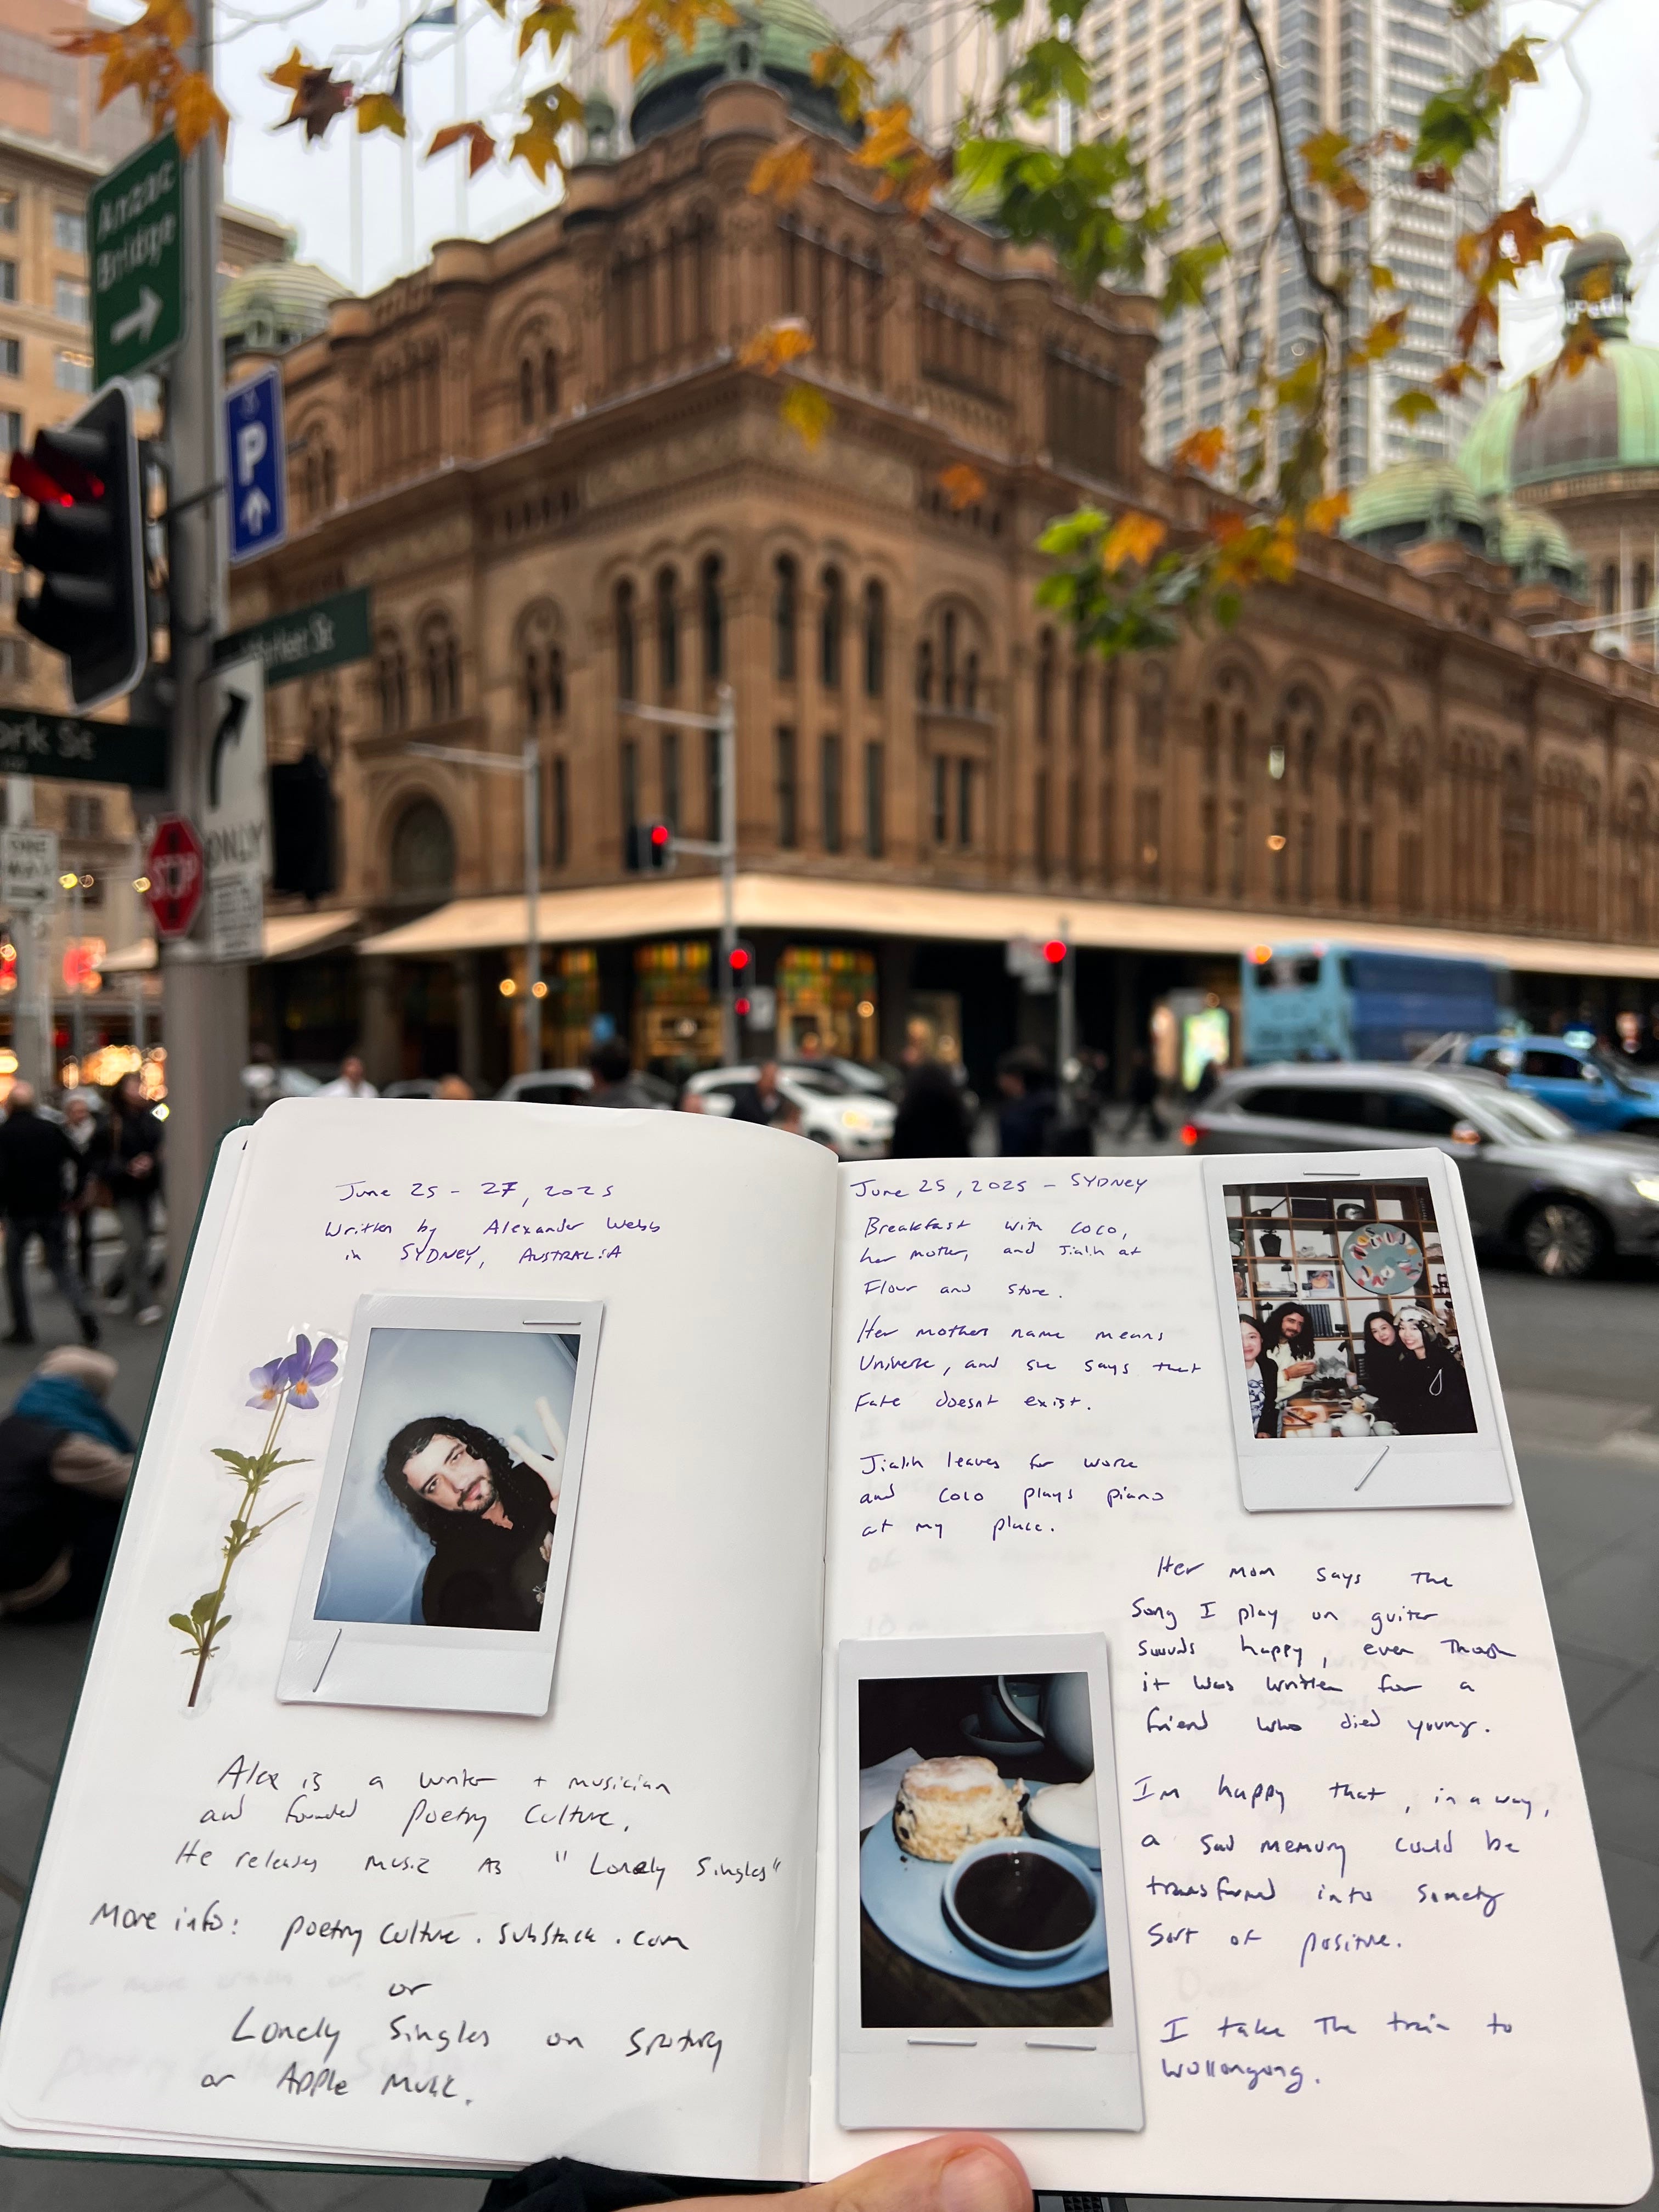 Anzac
Bridge
P
Market St
ork St
ONLY
STOP
June 25 - 27, 2025
Written by Alexander Webb
in SYDNEY, AUSTRALIA
Alex is a writer + musician
and founded Poetry Culture.
He releases music as "Lonely Singles"
More info: poetry culture . substack . com
or
Lonely Singles on Spotify
or Apple Music.
June 25, 2025 - SYDNEY
Breakfast with Coco,
her mother, and Jialin at
Flour and Stone.
Her mothers name means
Universe, and she says that
Fate doesnt exist.
Jialin leaves for work
and Coco plays piano
at my place.
Her mom says the
song I play on guitar
sounds happy, even though
it was written for a
friend who died young.
Im happy that, in a way,
a sad memory could be
transformed into
sort of positive.
I take the train to
Wollongong.